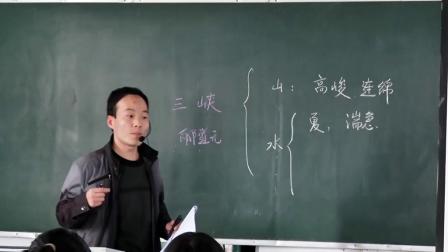 三峡
郦道元
山：高峻 连绵
水
夏，湍急